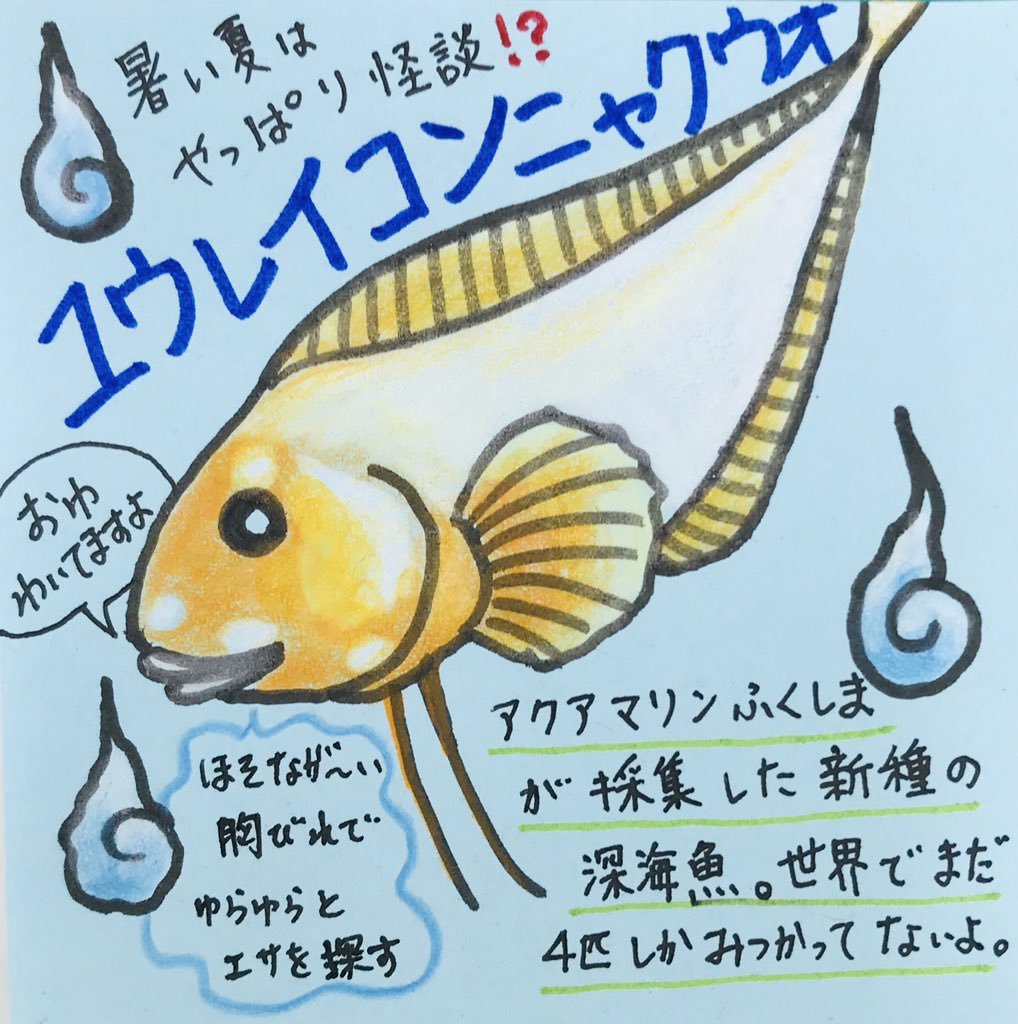 暑い夏は
やっぱり怪談!?
ユウレイコンニャクウオ
おゆ
わいてますよ
ほそなが〜い
胸びれで
ゆらゆらと
エサを探す
アクアマリンふくしま
が採集した新種の
深海魚。世界でまだ
4匹しかみつかってないよ。